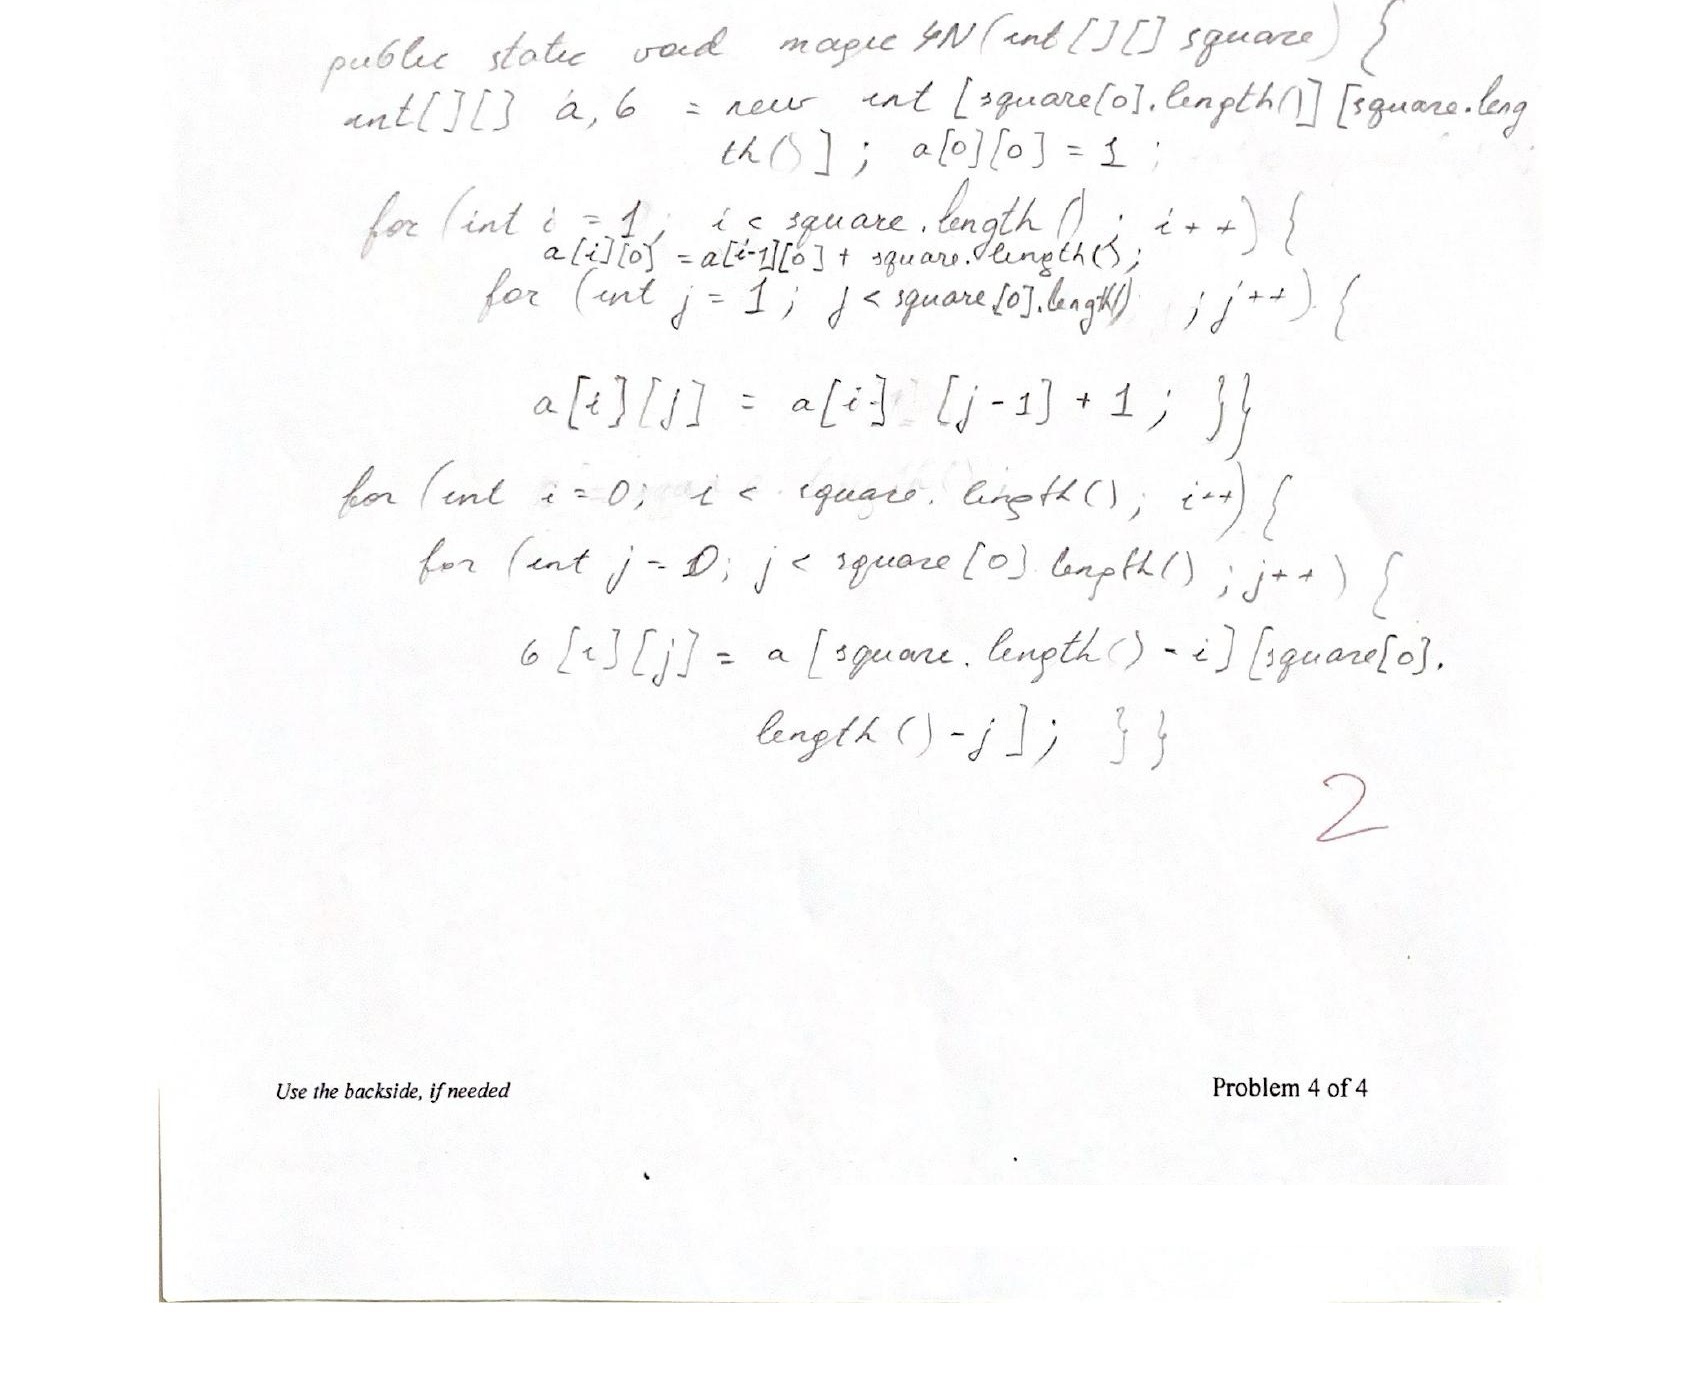 public static void magic4N(int[][] square) {
int[][] a, b = new int [square[0].length()] [square.leng
th()]; a[0][0] = 1;
for (int i = 1; i < square.length(); i++) {
a[i][0] = a[i-1][0] + square.length();
for (int j = 1; j < square[0].length() ; j++) {
a[i][j] = a[i] [j-1] + 1; }}
for (int i = 0; i < square.length(); i++) {
for (int j = 0; j < square[0].length(); j++) {
b[i][j] = a[square.length() - i][square[0].
length() - j]; }}
2
Use the backside, if needed
Problem 4 of 4